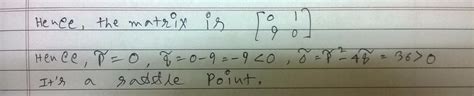 Hence, the matrix is [0 1
9 0]
Hence, p̃ = 0, q̃ = 0-9 = -9 < 0, δ̃ = p̃² - 4q̃ = 36 > 0
It's a saddle point.